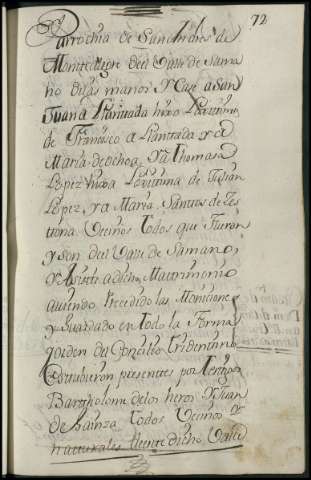 72
Parrochia de San Andres de
Montealegre del Valle de Sama
no dilas manos y Case a San
Juan a Llantrada hixo Lexitimo
de Francisco a Llantrada y a
Maria de ochoa, y a Thomasa
Lopez hixa Lexitima de Julian
Lopez, y a Maria Santos de Les
tiona Vecinos todos que fueron
y son del Valle de Samano,
y Asisti a dicho Matrimonio
auiendo Precedido las Monicione
y Guardado en todo la Forma
y orden del Conzilio tridentino
Estubieron presentes por testigos
Bartholome de los heros y Juan
de todos Vecinos y
naturales de este dicho Valle